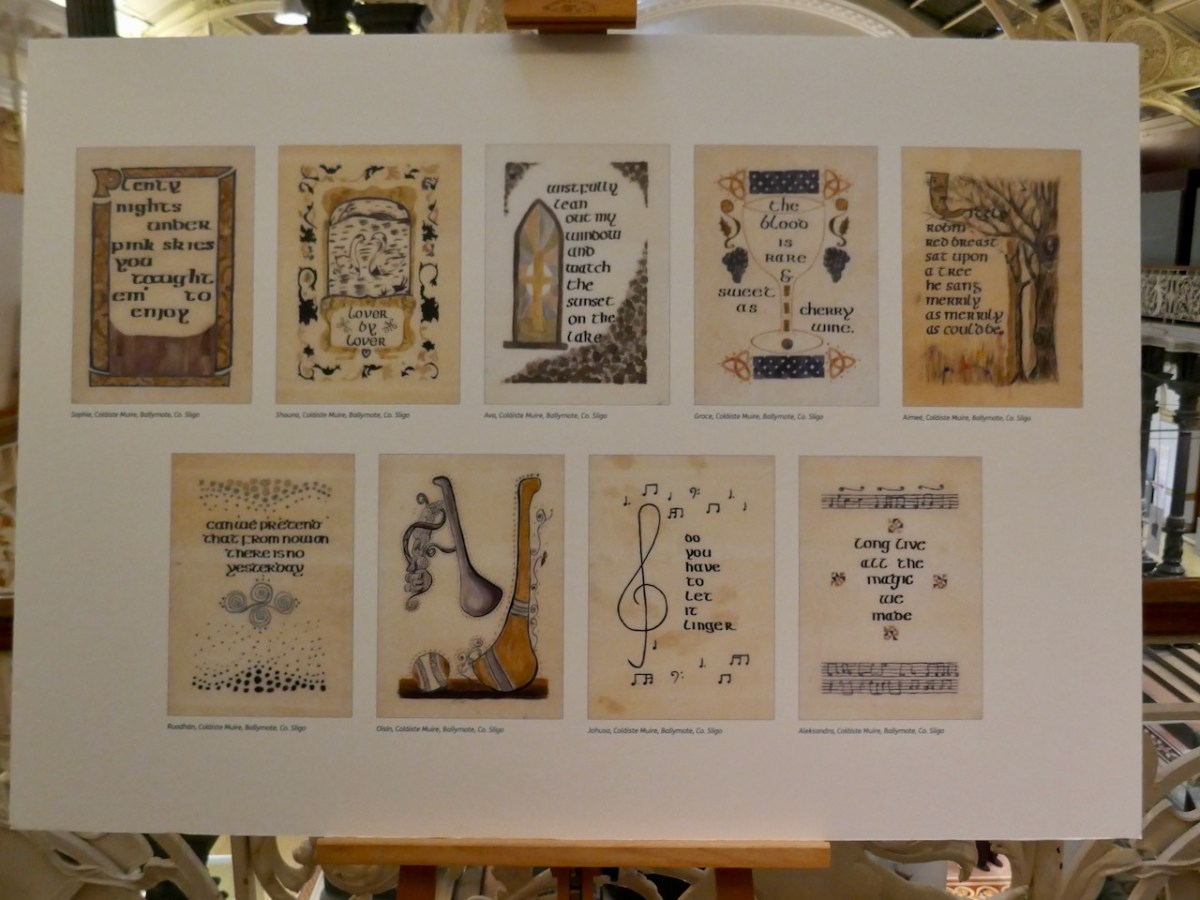 Plenty
nights
under
pink skies
you
taught
em' to
enjoy
Sophie, Coláiste Muire, Ballymote, Co. Sligo
Lover
by
Lover
Shauna, Coláiste Muire, Ballymote, Co. Sligo
wistfully
lean
out my
window
and
watch
the
sunset
on the
lake
Ava, Coláiste Muire, Ballymote, Co. Sligo
the
blood
is
rare
&
sweet
as
cherry
wine.
Grace, Coláiste Muire, Ballymote, Co. Sligo
Little
robin
red breast
sat upon
a tree
he sang
merrily
as merrily
as could be.
Aimeé, Coláiste Muire, Ballymote, Co. Sligo
can we pretend
that from now on
there is no
yesterday
Ruadhán, Coláiste Muire, Ballymote, Co. Sligo
Oisín, Coláiste Muire, Ballymote, Co. Sligo
do
you
have
to
let
it
linger
Johusa, Coláiste Muire, Ballymote, Co. Sligo
long live
all the
magic
we
made
Aleksandra, Coláiste Muire, Ballymote, Co. Sligo